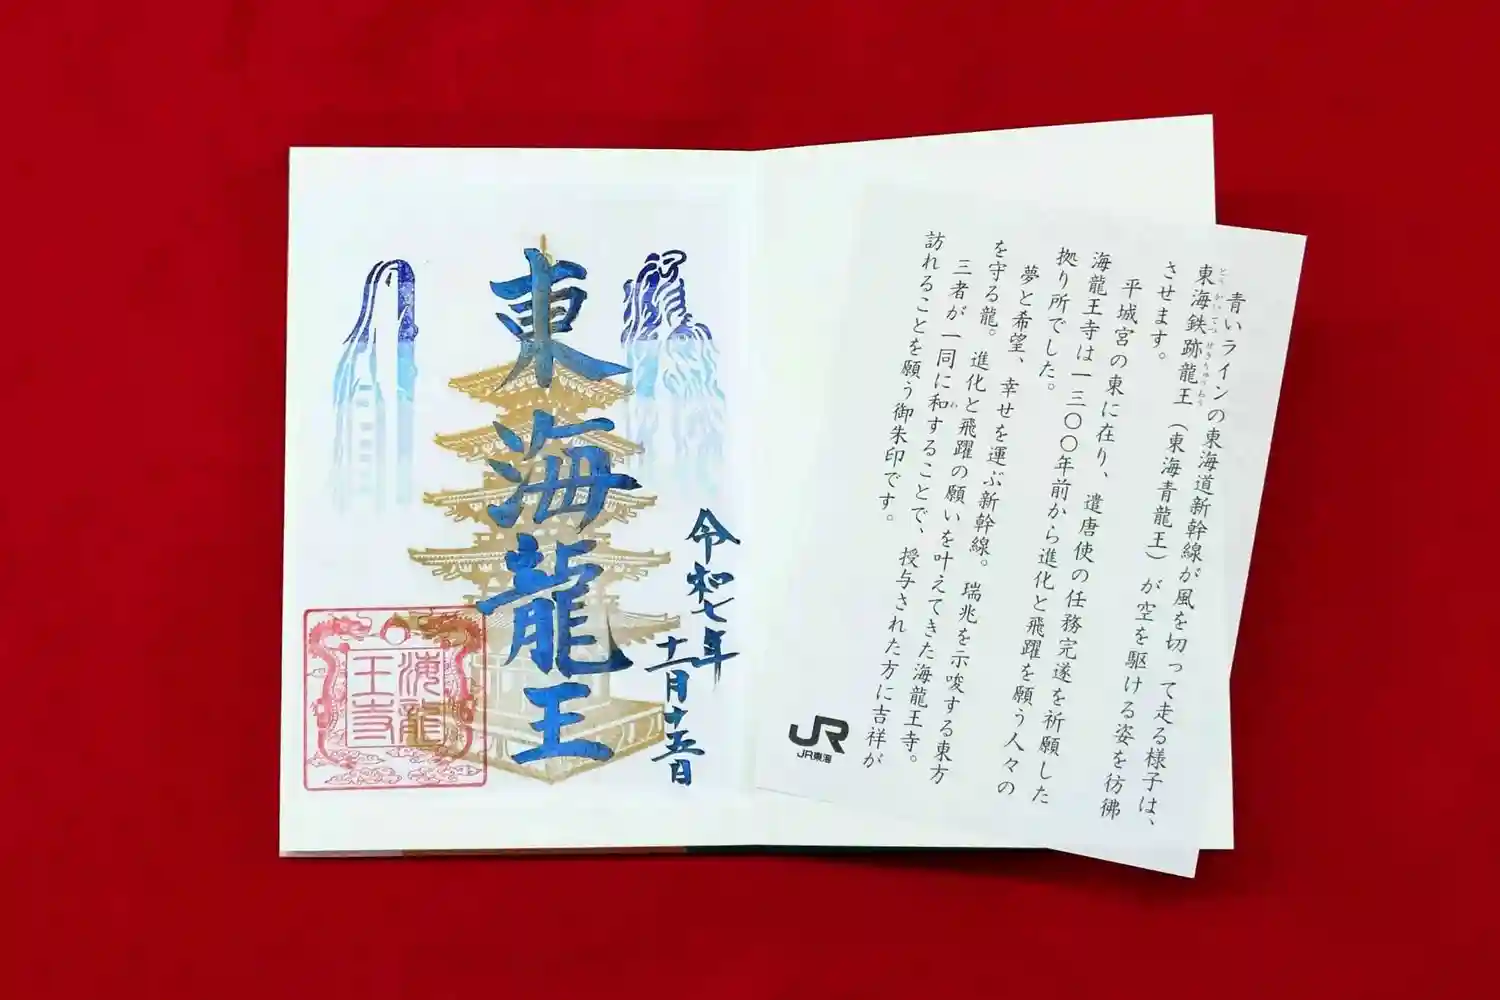 東海龍王
令和七年
十二月十五日
海龍
王寺
青いラインの東海道新幹線が風を切って走る様子は、
東海鉄跡龍王（東海青龍王）が空を駆ける姿を彷彿
とうかいてつせきりゅうおう
させます。
平城宮の東に在り、遣唐使の任務完遂を祈願した
海龍王寺は一三〇〇年前から進化と飛躍を願う人々の
拠り所でした。
夢と希望、幸せを運ぶ新幹線。瑞兆を示唆する東方
を守る龍。進化と飛躍の願いを叶えてきた海龍王寺。
三者が一同に和することで、授与された方に吉祥が
わ
訪れることを願う御朱印です。
JR
JR東海